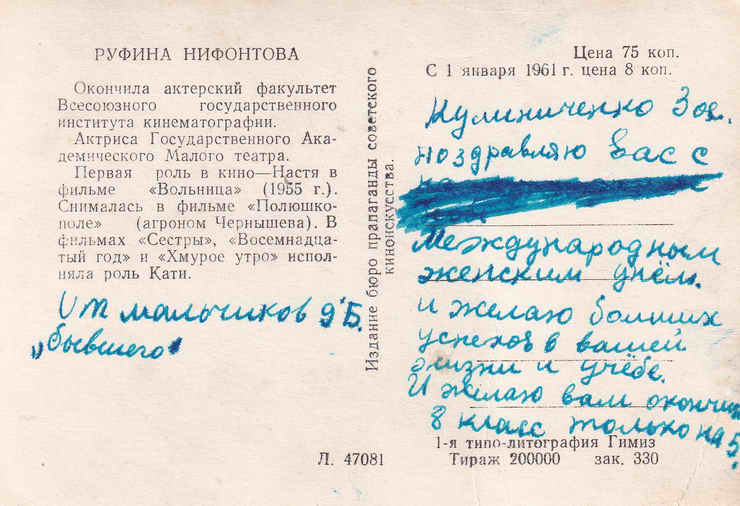 РУФИНА НИФОНТОВА
Окончила актерский факультет
Всесоюзного государственного
института кинематографии.
Актриса Государственного Ака-
демического Малого театра.
Первая роль в кино—Настя в
фильме «Вольница» (1955 г.).
Снималась в фильме «Полюшко-
поле» (агроном Чернышева). В
фильмах «Сестры», «Восемнадца-
тый год» и «Хмурое утро» испол-
няла роль Кати.
От мальчиков 9"Б.
„бывшего"
Издание бюро прапаганды советского
киноискусства.
Цена 75 коп.
С 1 января 1961 г. цена 8 коп.
Кулиниченко Зое.
поздравляю Вас с
Международным
женским днём.
и желаю больших
успехов в вашей
жизни и учёбе.
И желаю вам окончить
8 класс только на 5.
1-я типо-литография Гимиз
Л. 47081 Тираж 200000 зак. 330